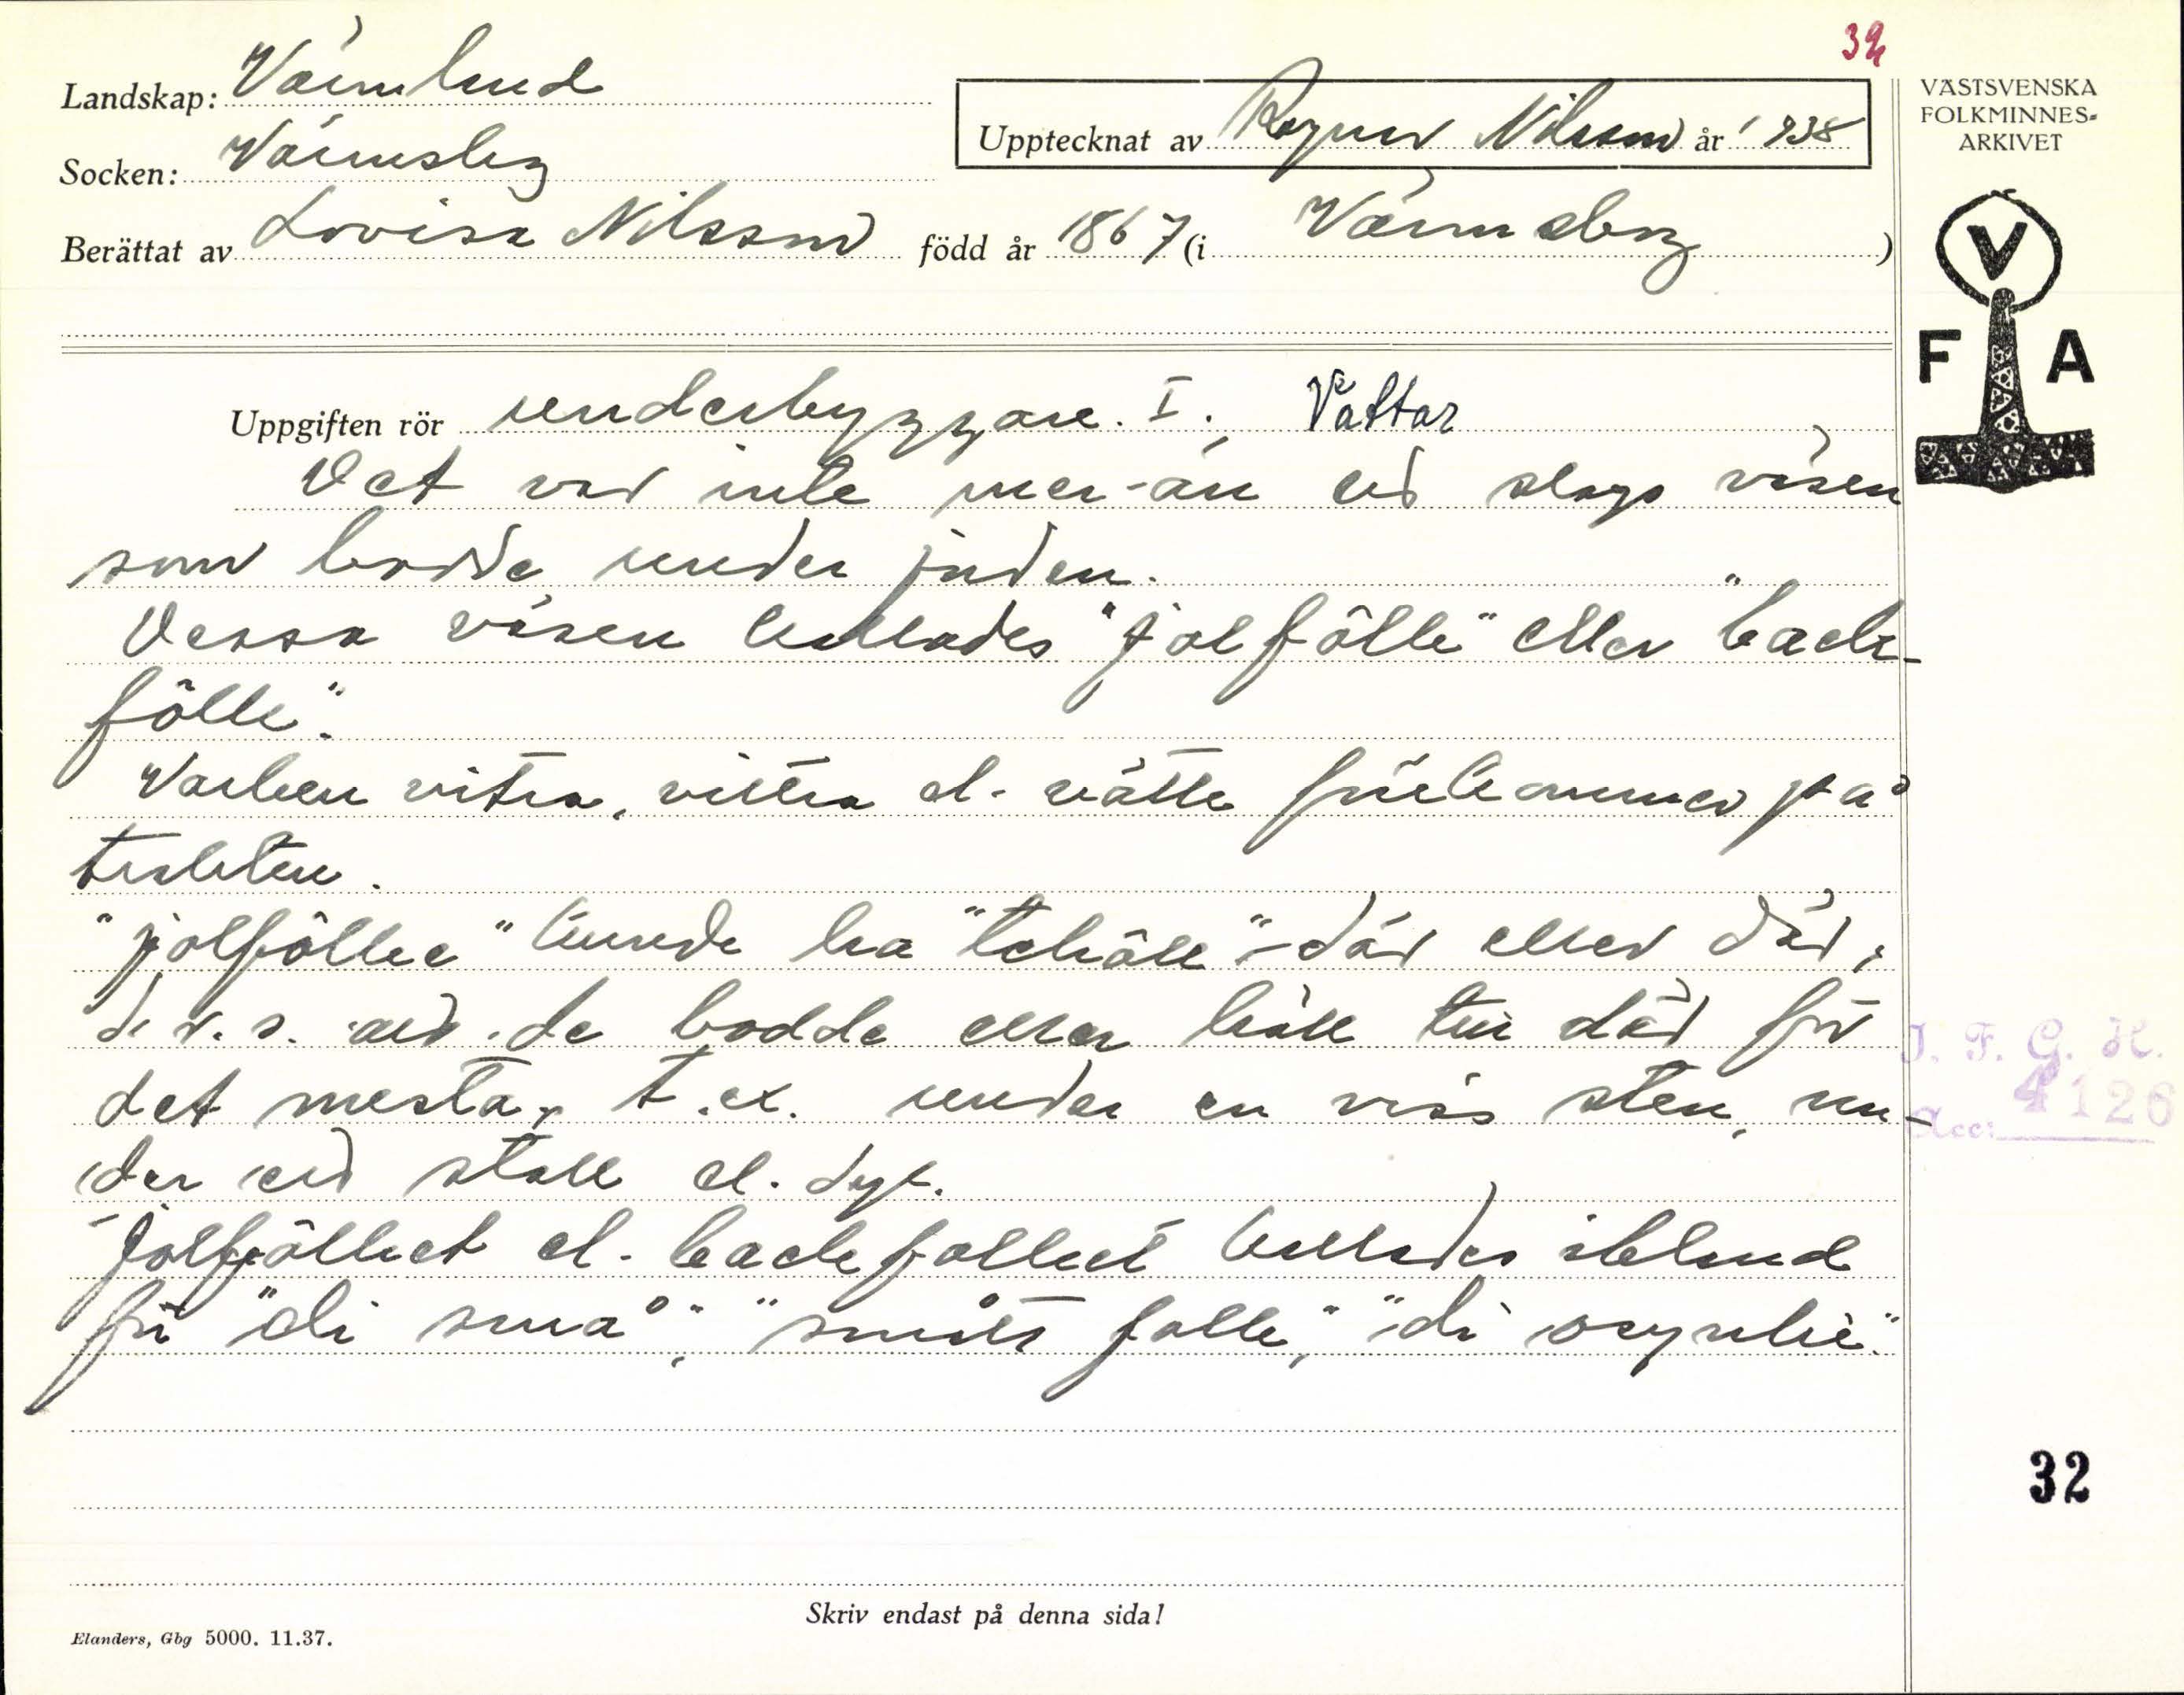 32
Landskap: Värmland
Upptecknat av Ragnar Nilsson år 1938
Socken: Värmskog
Berättat av Lovisa Nilsson född år 1867 (i Värmskog)
VÄSTSVENSKA
FOLKMINNES-
ARKIVET
V
F A
Uppgiften rör underbyggare. I. Vättar
Det var inte mer än ett slags väsen
som bodde under jorden.
Dessa väsen kallades "jolfôlk" eller "back-
fôlk".
Varken vitra, vittra el. vätte förekommer på
trakten.
"jolfôlke" kunde ha "tehåll" där eller där,
d.v.s. att de bodde eller höll till där för
det mesta, t.ex. under en viss sten, un-
der ett stall el. dyl.
Jolfôlket el. backfolket kallades ibland
för "di små", "smått folk", "di osynlie".
I. F. G. H.
Acc: 4126
32
Skriv endast på denna sida!
Elanders, Gbg 5000. 11.37.